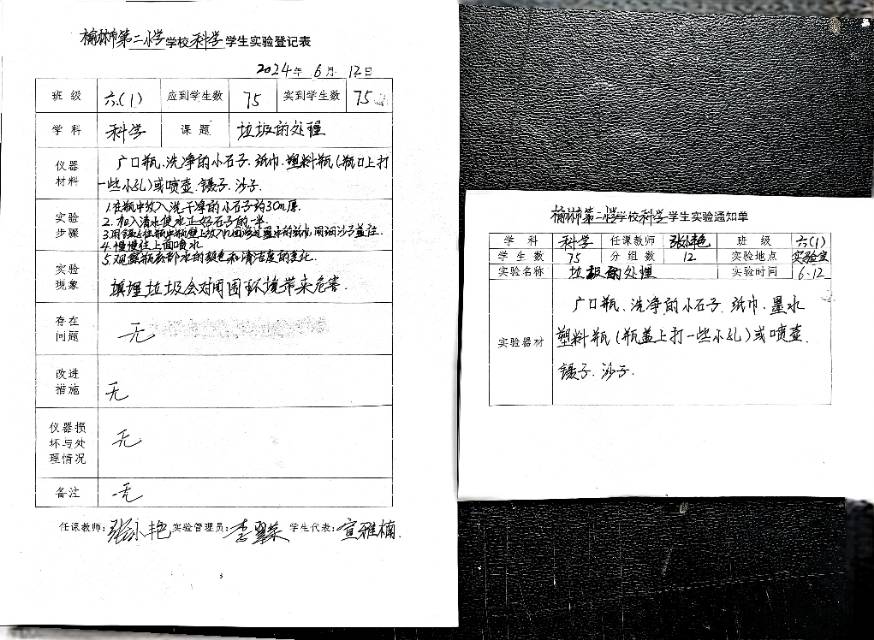 榆林市第二小学学校科学学生实验登记表
2024年 6月 12日
班级 六(1) 应到学生数 75 实到学生数 75
学科 科学 课题 垃圾的处理
仪器材料 广口瓶、洗净的小石子、纸巾、塑料瓶(瓶口上打
一些小孔)或喷壶、镊子、沙子.
实验步骤 1.在瓶中放入洗干净的小石子约30m厚.
2.加入清水使水正好石子的一半.
4.慢慢往上面喷水
5.观察瓶底部水的颜色和清洁度的变化.
实验现象 填埋垃圾会对周围环境带来危害.
存在问题 无
改进措施 无
仪器损坏与处理情况 无
备注 无
任课教师: 张小艳 实验管理员: 李翠荣 学生代表: 宣雅楠.
榆林第二小学学校科学学生实验通知单
学科 科学 任课教师 张小艳 班级 六(1)
学生数 75 分组数 12 实验地点 实验室
实验名称 垃圾的处理 实验时间 6.12
实验器材 广口瓶、洗净的小石子、纸巾、墨水
塑料瓶(瓶盖上打一些小孔)或喷壶.
镊子、沙子.